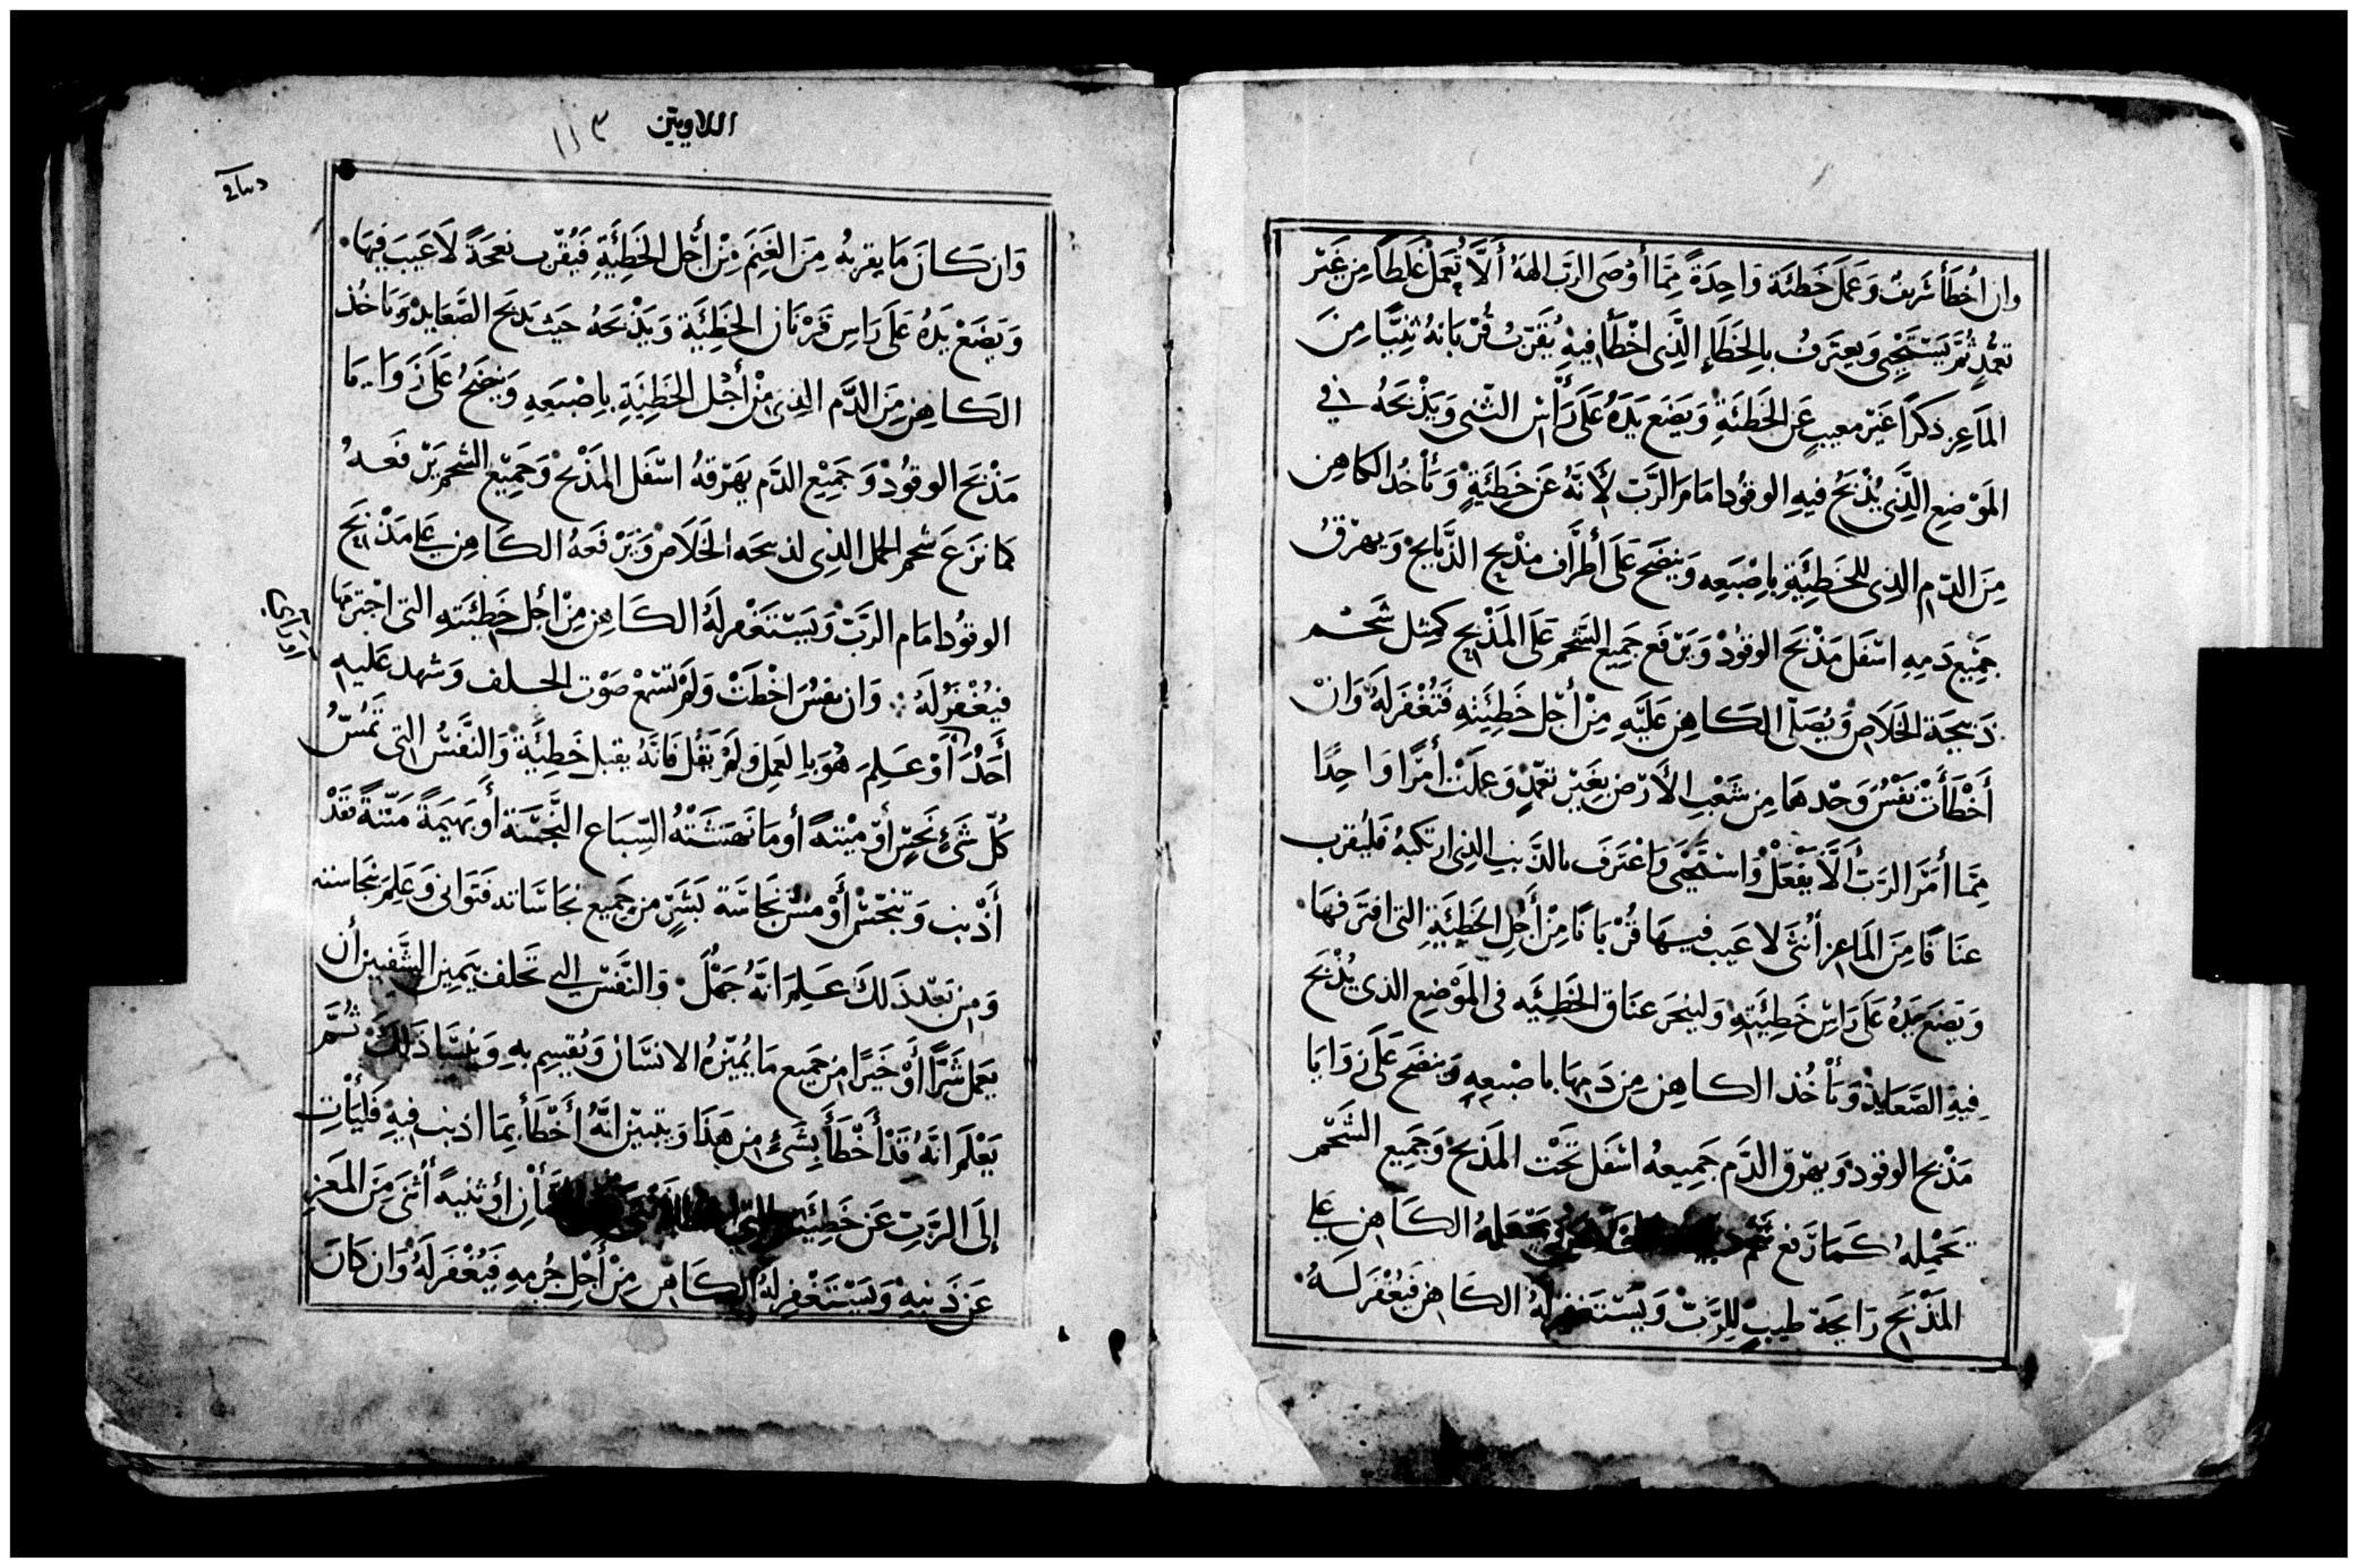 وان اخطأ شريف وعمل خطئة واحدة مما أوصى الرب الهه ألا تعمل غلطا من غير
تعمد ثم يستحيى ويعترف بالخطاء الذى اخطأ فيه يقرب قربانه ثنيا من
الماعز ذكرا غير معيب عن الخطئة ويضع يده على رأس الثنى ويذبحه في
الموضع الذى يذبح فيه الوقود امام الرب لأنه عن خطئة ويأخذ الكاهن
من الدم الذى للخطيئة باصبعه وينضح على أطراف مذبح الذبايح ويهرق
جميع دمه اسفل مذبح الوقود ويرفع جميع الشحم على المذبح كمثل شحم
ذبيحة الخلاص ويصلى الكاهن عليه من أجل خطيئته فتغفر له وان
أخطأت نفس وحدها من شعب الأرض بغير تعمد وعملت أمرا واحدا
مما أمر الرب ألا يفعل واستحيى واعترف بالذنب الذى ارتكبه فليقرب
عناقا من الماعز أنثى لا عيب فيها قربانا من أجل الخطيئة التى اقترفها
ويضع يده على راس خطيئته ولينحر عناق الخطيئه فى الموضع الذى يذبح
فيه الصعايد ويأخذ الكاهن من دمها باصبعه وينضح على زوايا
مذبح الوقود ويهرق الدم جميعه اسفل تحت المذبح وجميع الشحم
تحمله كما رفع شحم يجعله الكاهن على
المذبح رايحة طيب للرب ويستغفر له الكاهن فيغفر له
اللاويين ١١٣
وان كان ما يقربه من الغنم من أجل الخطيئة فيقرب نعجة لا عيب فيها
ويضع يده على راس قربان الخطيئة ويذبحه حيث يذبح الصعايد وياخذ
الكاهن من الدم الذى من أجل الخطيئة باصبعه وينضح على زوايا
مذبح الوقود وجميع الدم يهرقه اسفل المذبح وجميع الشحم يرفعه
كما نزع شحم الحمل الذى لذبيحه الخلاص ويرفعه الكاهن على مذبح
الوقود امام الرب ويستغفر له الكاهن من أجل خطيئته التى اجترمها
فيغفر له وان نفس اخطت ولم تسمع صوت الحلف وشهد عليه
أحد أو علم هو بالعمل ولم يقل فانه يقبل خطيئة والنفس التى تمس
كل شئ نجس أو ميتة أو ما نهشته السباع النجسة أو بهيمة ميتة فقد
أذنب وتنجس أو مس نجاسة بشر من جميع نجاساته فتوانى وعلم نجاسته
ومن بعد ذلك علم انه جمل والنفس التى تحلف بيمين الشفتين أن
يعمل شرا أو خيرا من جميع ما يميزه الانسان ويقسم به وينسا ذلك ثم
يعلم انه قد أخطأ بشئ من هذا ويتبين انه أخطأ بما اذنب فيه فليأت
إلى الرب عن خطيئته التى أو ثنية أنثى من المعز
عن ذنبه ويستغفر له الكاهن من أجل جرمه فيغفر له وان كان